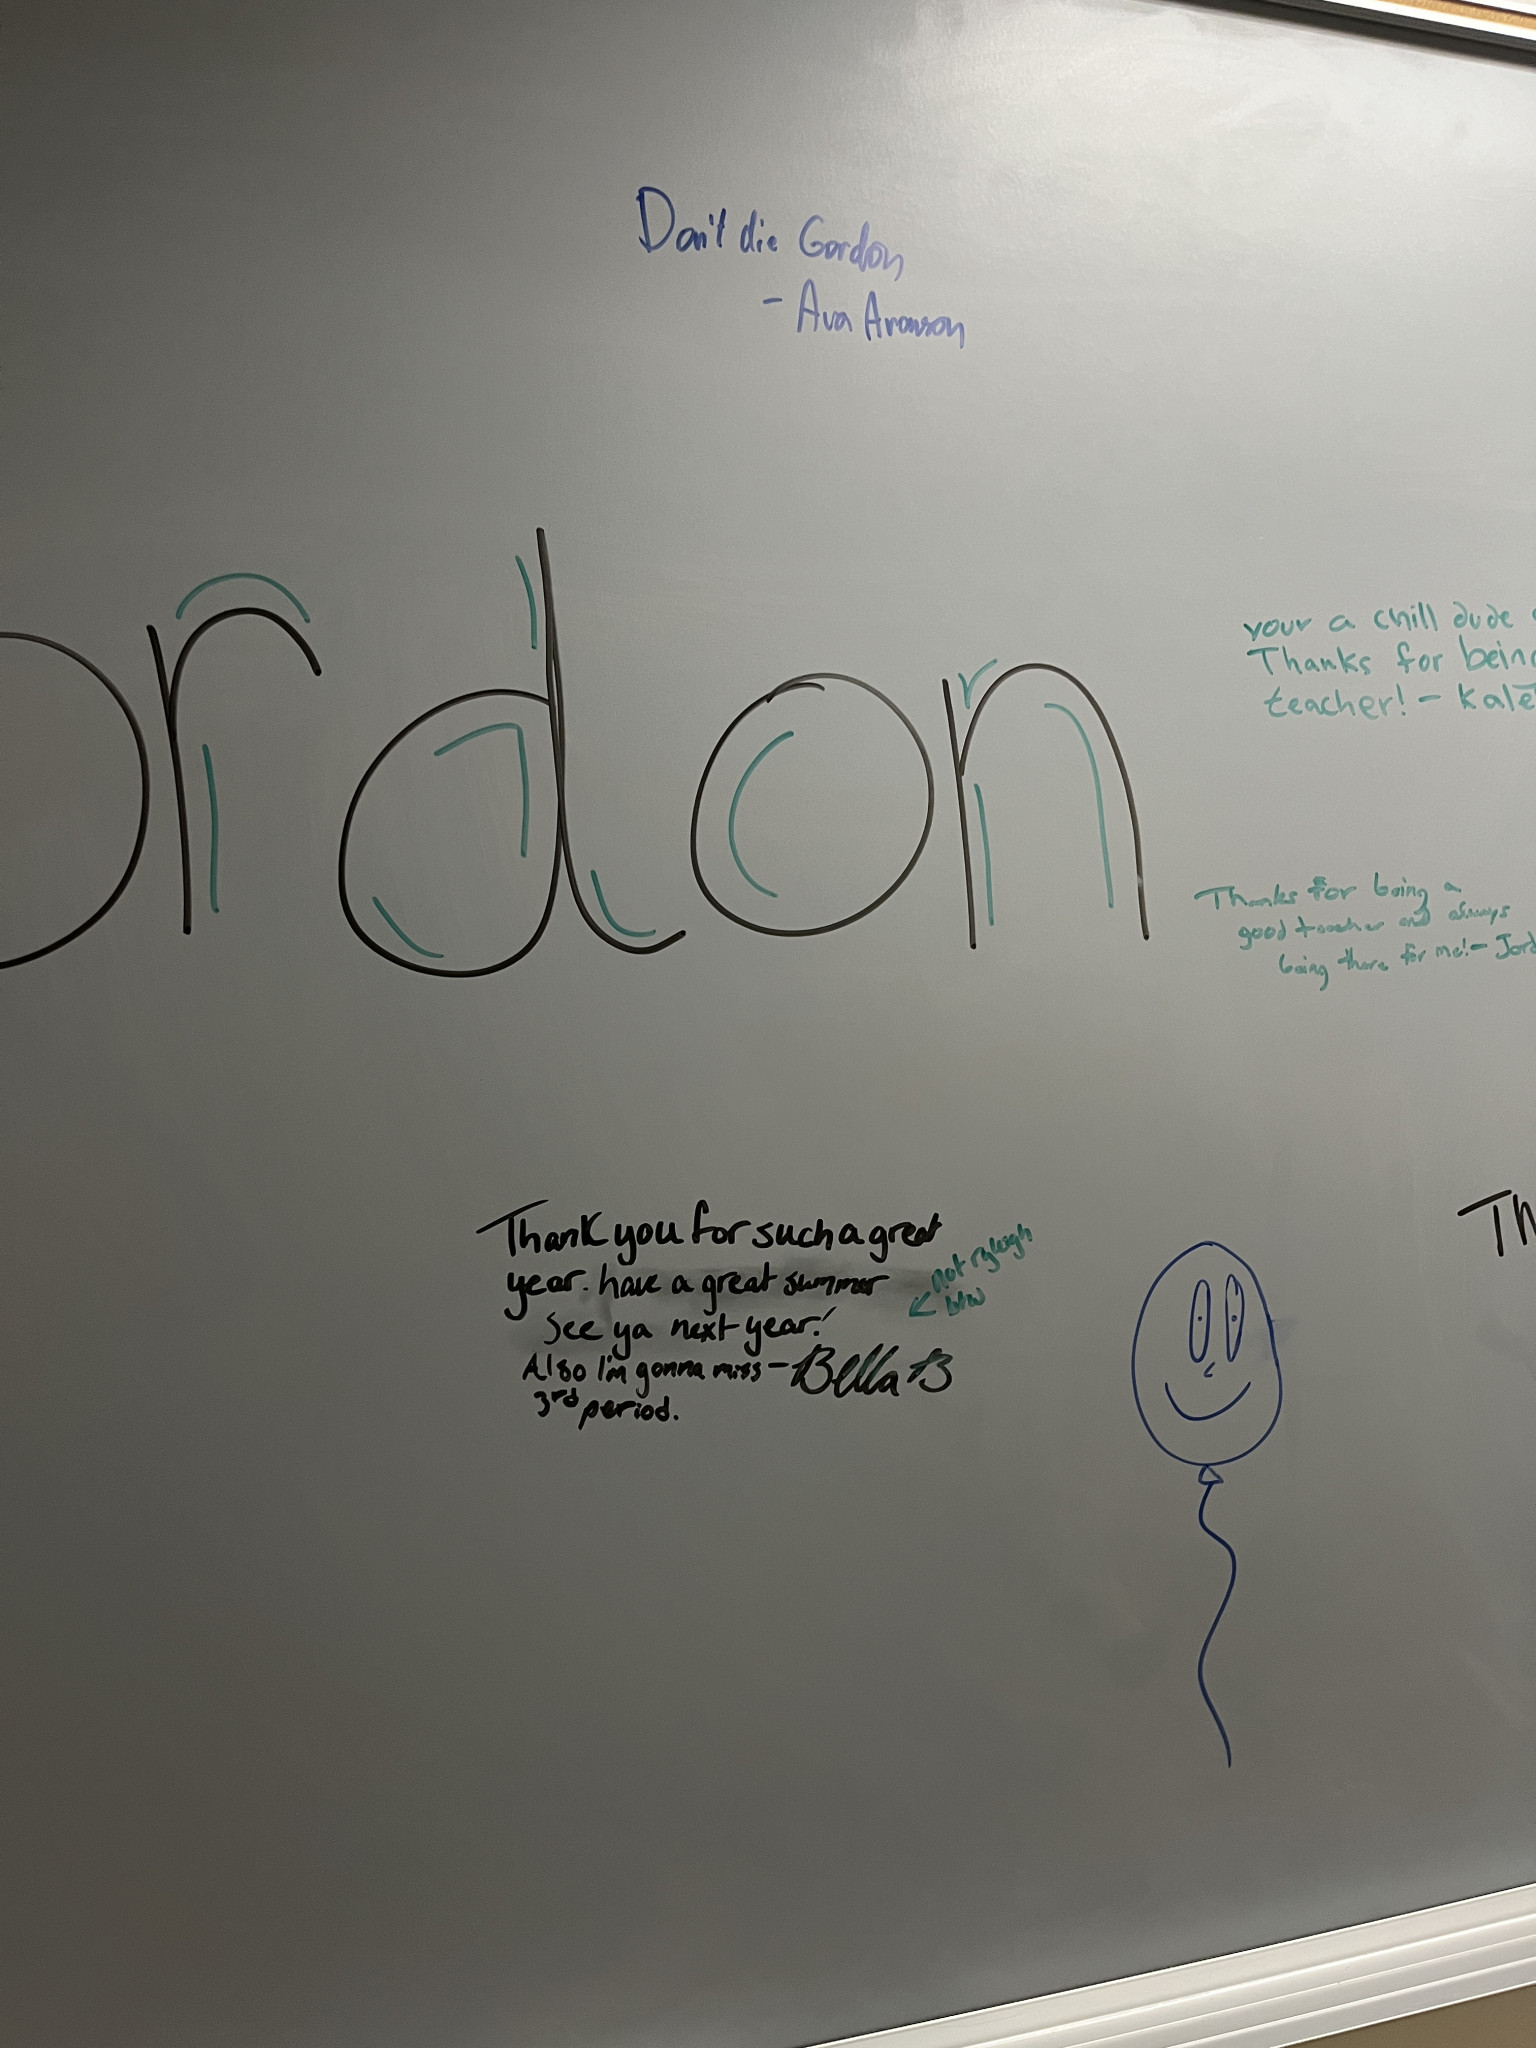 Don't die Gordon
- Ava Aronson
ordon
your a chill dude
Thanks for being
teacher! - Kale
Thanks for being a
good teacher and always
being there for me! - Jord
Thank you for such a great
year. have a great summer
See ya next year!
Also I'm gonna miss - Bella B
3rd period.
not ryleigh
← btw
Th